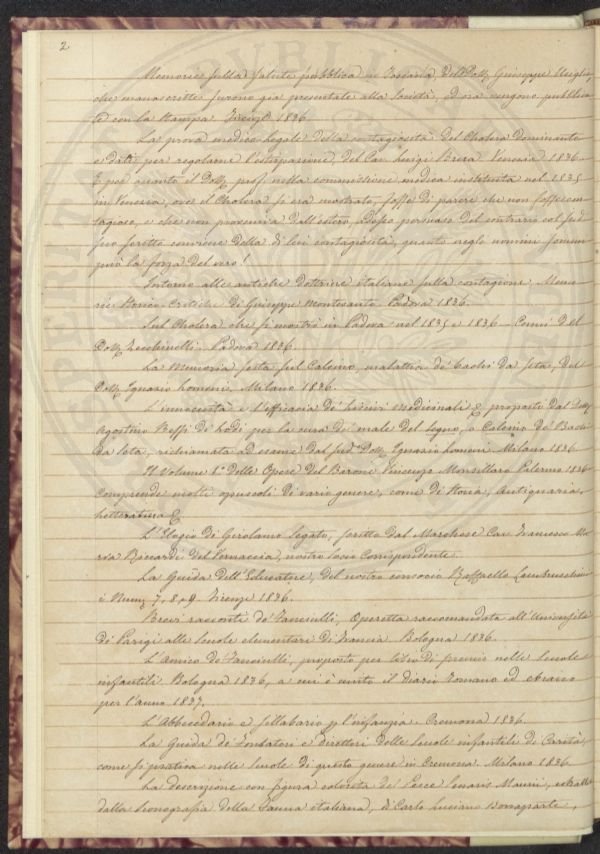 2
Memorie sulla salute pubblica in Toscana, del Dott. Giuseppe
che manoscritte furono già presentate alla Società, ed ora vengono pubblica
te con la stampa. Firenze 1836.
La prova medico-legale della contagiosità del Cholera dominante
e dati per regolarne l'estirpazione, del Cav. Luigi Brera Venezia 1836.
E per quanto il Dott. prof. nella commissione medica instituita nel 1835
in Venezia, ove il Cholera si era mostrato, fosse di parere che non fosse con
tagioso, e che non proveniva dall'estero, dopo persuaso del contrario col sud
suo scritto conviene della di lui contagiosità, quanto negli uomini sommi
può la forza del vero!
Intorno alle antiche dottrine italiane sulla contagione Memo
rie Storico-Critiche di Giuseppe Montesanto Padova 1836.
Sul Cholera che si mostrò in Padova nel 1835 e 1836 Cenni del
Dott. Zecchinelli. Padova 1836.
La Memoria sesta sul Calcino, malattia de' bachi da seta, del
Dott. Ignazio Lomeni. Milano 1836.
L'innocuità e l'efficacia de' liscivi medicinali &c proposti dal Dott.
Agostino Bassi di Lodi per la cura del male del segno, o Calcino de' Bachi
da seta, richiamata ad esame dal sud.o Dott. Ignazio Lomeni Milano 1836.
Il Volume 1.o delle Opere del Barone Vincenzo Mortillaro Palermo 1836
Comprende molti opuscoli di vario genere, come di Storia, Antiquaria,
Letteratura &c
L'Elogio di Girolamo Segato, scritto dal Marchese Cav. Francesco Ma
ria Riccardi Del Vernaccia, nostro socio Corrispondente.
La Guida dell'Educatore, del nostro consocio Raffaello Lambruschini
i Num. 7, 8 e 9. Firenze 1836.
Brevi racconti de' Fanciulli, Operetta raccomandata all'Università
di Parigi alle scuole elementari di Francia Bologna 1836.
L'Amico de' Fanciulli, proposto per libro di premio nelle scuole
infantili Bologna 1836, a cui è unito il diario Romano ed ebraico
per l'anno 1837.
L'Abbecedario e sillabario p l'infanzia. Cremona 1836.
La Guida de' Fondatori e direttori delle scuole infantili di Carità,
come si pratica nelle scuole di questo genere in Cremona. Milano 1836.
La descrizione con figura colorata del Pesce Maurii, estratta
dalla Iconografia della Fauna italiana, di Carlo Luciano Bonaparte,